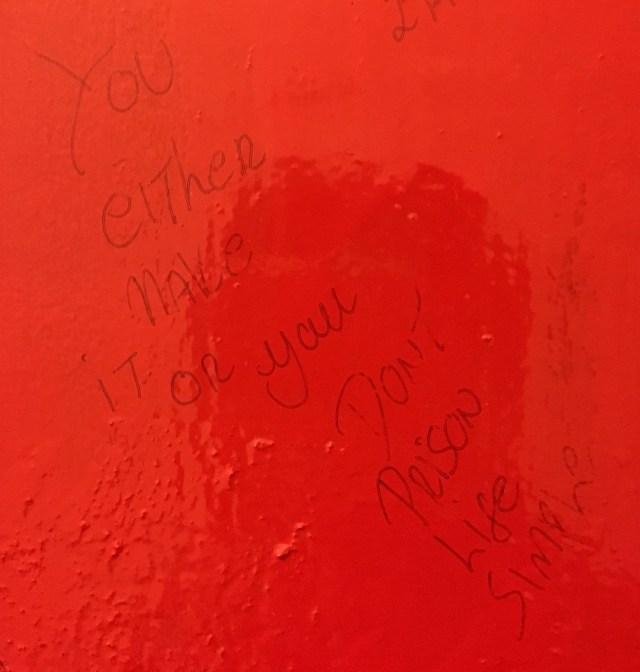 YOU
eiTher
MAKe
iT OR you
DON'T
PRiSON
LiFe
SiMPLe